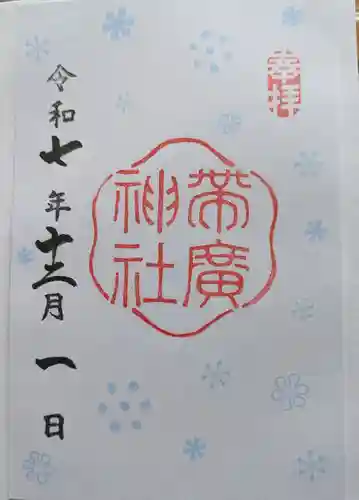 奉拝
帯廣
神社
令和七年十二月一日